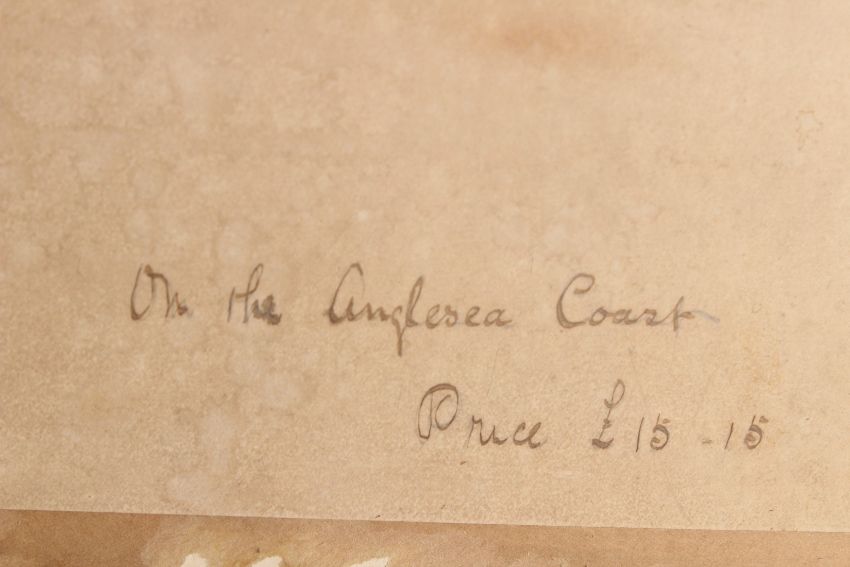 On the Anglesea Coast
Price £15-15